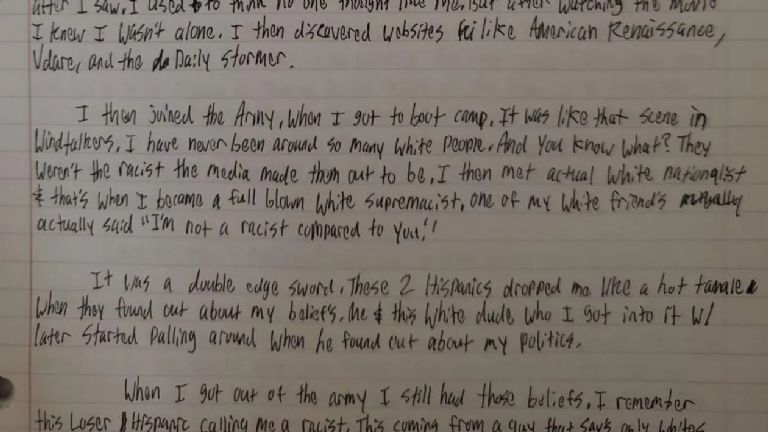 after I saw. I used to think no one thought like me. But after watching the movie
I knew I wasn't alone. I then discovered websites like American Renaissance,
Vdare, and the Daily Stormer.
I then joined the Army, When I got to boot camp, It was like that scene in
Windtalkers, I have never been around so many white people. And you know what? They
weren't the racist the media made them out to be. I then met actual white nationalist
& that's when I became a full blown white supremacist, one of my white friend's
actually said "I'm not a racist compared to you."
It was a double edge sword. These 2 Hispanics dropped me like a hot tamale
when they found out about my beliefs. Me & this white dude who I got into it w/
later started palling around when he found out about my politics.
When I got out of the army I still had those beliefs. I remember
this Loser Hispanic calling me a racist. This coming from a guy that says only whites